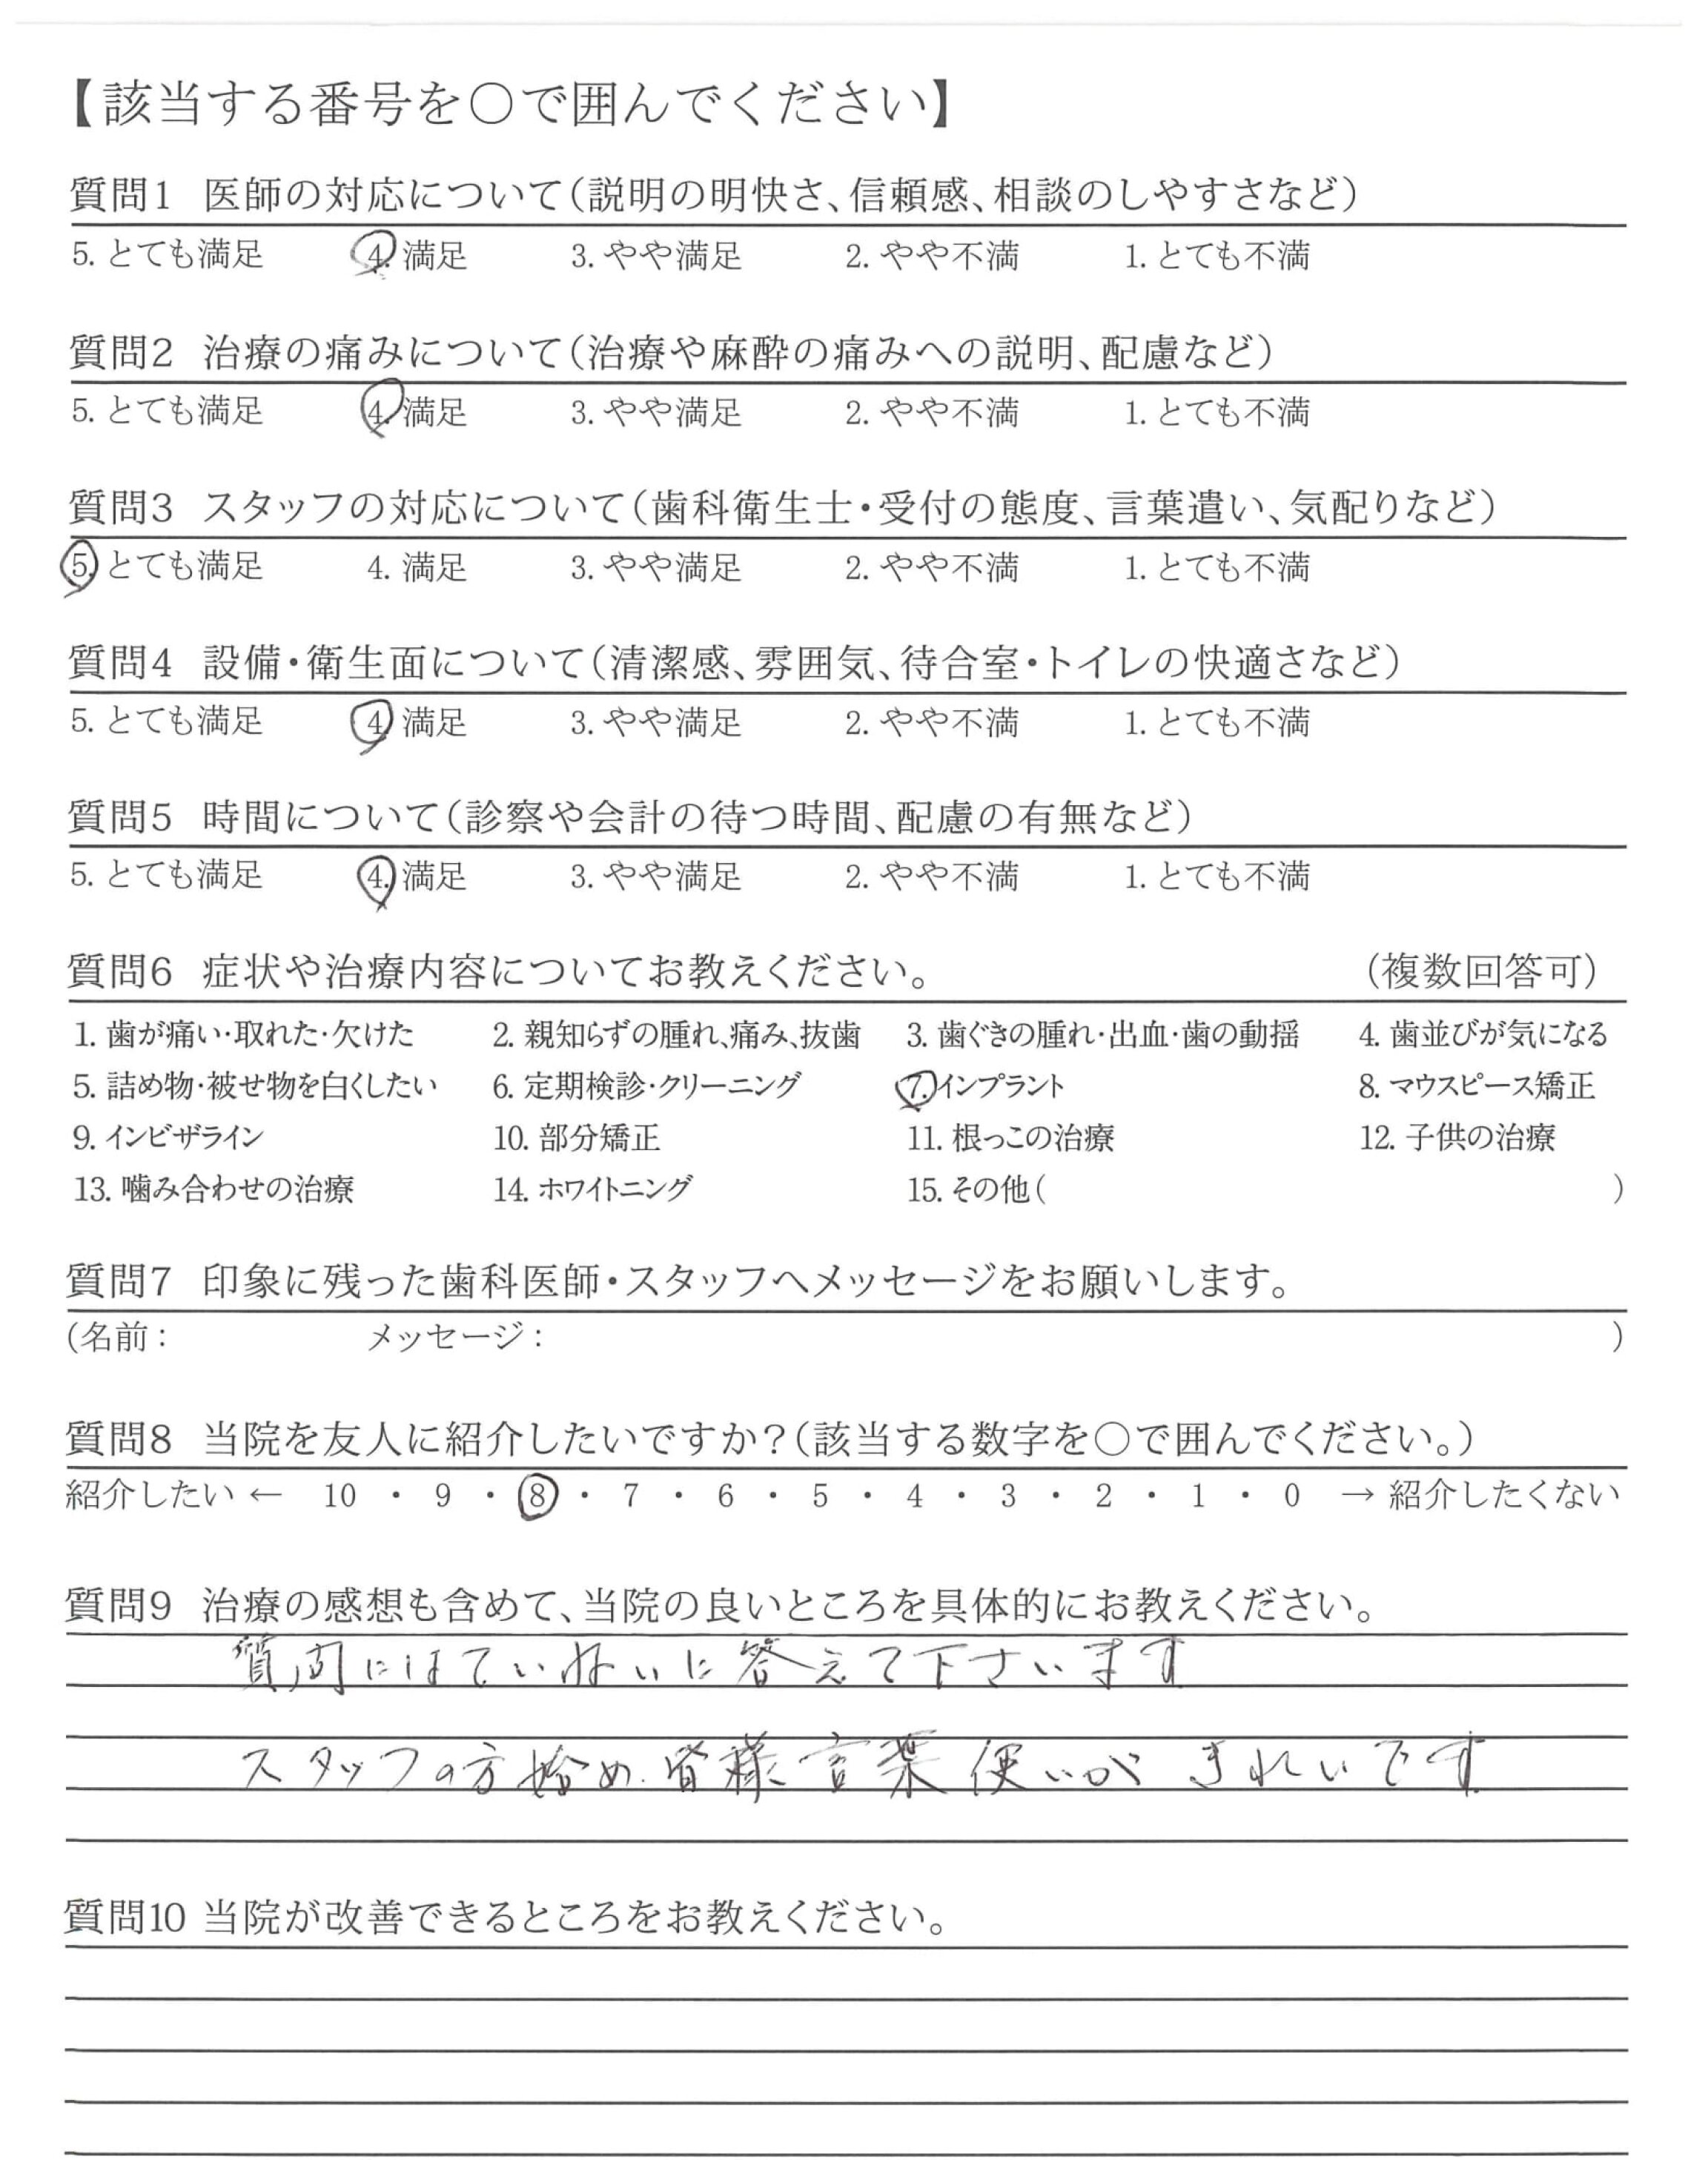 【該当する番号を○で囲んでください】
質問1 医師の対応について(説明の明快さ、信頼感、相談のしやすさなど)
5. とても満足 4. 満足 3. やや満足 2. やや不満 1. とても不満
質問2 治療の痛みについて(治療や麻酔の痛みへの説明、配慮など)
5. とても満足 4. 満足 3. やや満足 2. やや不満 1. とても不満
質問3 スタッフの対応について(歯科衛生士・受付の態度、言葉遣い、気配りなど)
5. とても満足 4. 満足 3. やや満足 2. やや不満 1. とても不満
質問4 設備・衛生面について(清潔感、雰囲気、待合室・トイレの快適さなど)
5. とても満足 4. 満足 3. やや満足 2. やや不満 1. とても不満
質問5 時間について(診察や会計の待つ時間、配慮の有無など)
5. とても満足 4. 満足 3. やや満足 2. やや不満 1. とても不満
質問6 症状や治療内容についてお教えください。 (複数回答可)
1. 歯が痛い・取れた・欠けた 2. 親知らずの腫れ、痛み、抜歯 3. 歯ぐきの腫れ・出血・歯の動揺 4. 歯並びが気になる
5. 詰め物・被せ物を白くしたい 6. 定期検診・クリーニング 7. インプラント 8. マウスピース矯正
9. インビザライン 10. 部分矯正 11. 根っこの治療 12. 子供の治療
13. 噛み合わせの治療 14. ホワイトニング 15. その他( )
質問7 印象に残った歯科医師・スタッフへメッセージをお願いします。
(名前: メッセージ: )
質問8 当院を友人に紹介したいですか?(該当する数字を○で囲んでください。)
紹介したい ← 10 ・ 9 ・ 8 ・ 7 ・ 6 ・ 5 ・ 4 ・ 3 ・ 2 ・ 1 ・ 0 → 紹介したくない
質問9 治療の感想も含めて、当院の良いところを具体的にお教えください。
質問にはていねいに答えて下さいます
スタッフの方始め、皆様言葉使いがきれいです
質問10 当院が改善できるところをお教えください。